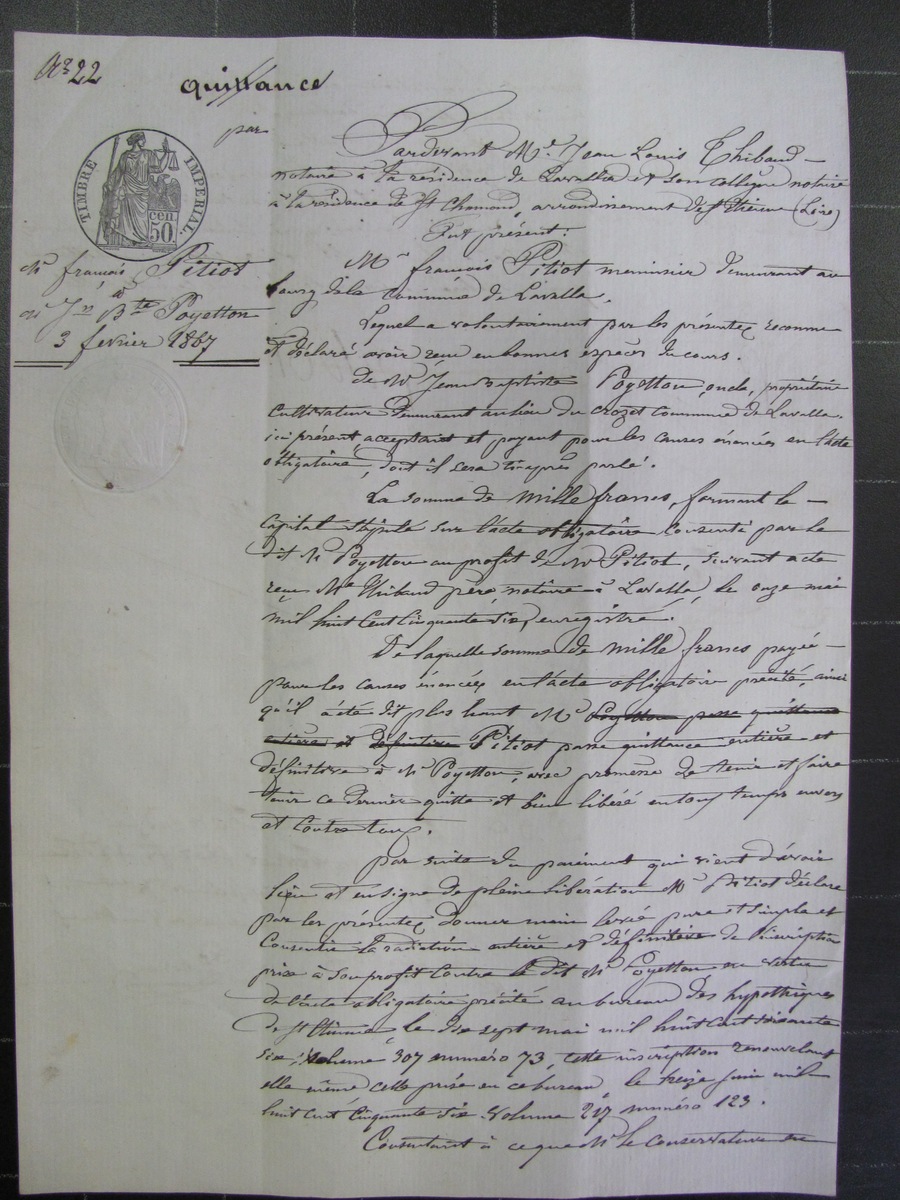 No 22
quittance
par
TIMBRE IMPERIAL
50 cen
Mr françois Pitiot
à
Mr Jn Bte Poyetton
3 fevrier 1867
Pardevant Me Jean Louis Thibaud
notaire à la residence de Lavalla et son collègue notaire
à la residence de St Chamond, arrondissement de St Etienne (Loire)
Fut présent:
Mr françois Pitiot menuisier demeurant au
bourg de la commune de Lavalla.
Lequel a volontairement par les présentes reconnu
et déclaré avoir reçu en bonnes espèces de cours.
De Mr Jean Baptiste Poyetton oncle, propriétaire
cultivateur demeurant au lieu du crozet commune de Lavalla.
ici présent, acceptant et payant pour les causes énoncées en l'acte
obligatoire, dont il sera ci après parlé.
La somme de mille francs, formant le
capital stipulé sur l'acte obligatoire consenti par le
dit Mr Poyetton au profit de Mr Pitiot, suivant acte
reçu Me Thibaud père, notaire à Lavalla, le onze mai
mil huit cent cinquante six, enregistré.
De laquelle somme de mille francs payée
pour les causes énoncées en l'acte obligatoire précité, ainsi
qu'il a été dit plus haut Mr Poyetton passe quittance
entière et définitive Pitiot passe quittance entière et
définitive à Mr Poyetton, avec promesse de tenir et faire
tenir ce dernier quitte et bien libéré en tous temps envers
et contre tous.
par suite du paiement qui vient d'avoir
lieu et en signe de pleine libération Mr Pitiot déclare
par les présentes donner main levée pure et simple et
consentir la radiation entière et définitive de l'inscription
prise à son profit contre le dit Mr Poyetton en vertu
de l'acte obligatoire précité au bureau des hypothèques
de St Etienne, le dix sept mai mil huit cent soixante
six, volume 307 numéro 73, cette inscription renouvelant
elle même celle prise en ce bureau le treize juin mil
huit cent cinquante six volume 217 numéro 123.
Consentant à ce que Mr le Conservateur en